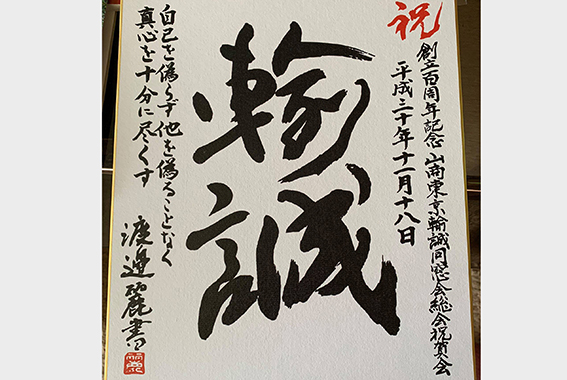 祝
創立百周年記念 山商東京輸誠同窓会総会祝賀会
平成三十年十一月十八日
輸誠
自己を偽らず他を偽ることなく
真心を十分に尽くす
渡邉麗書